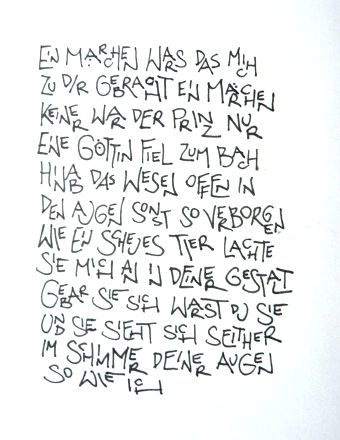 EIN MÄRCHEN WARS DAS MICH
ZU DIR GEBRACHT EIN MÄRCHEN
KEINER WAR DER PRINZ NUR
EINE GÖTTIN FIEL ZUM BACH
HINAB DAS WESEN OFFEN IN
DEN AUGEN SONST SO VERBORGEN
WIE EIN SCHEUES TIER LACHTE
SIE MICH AN IN DEINER GESTALT
GEBAR SIE SICH WARST DU SIE
UND SIE SIEHT SICH SEITHER
IM SCHIMMER DEINER AUGEN
SO WIE ICH